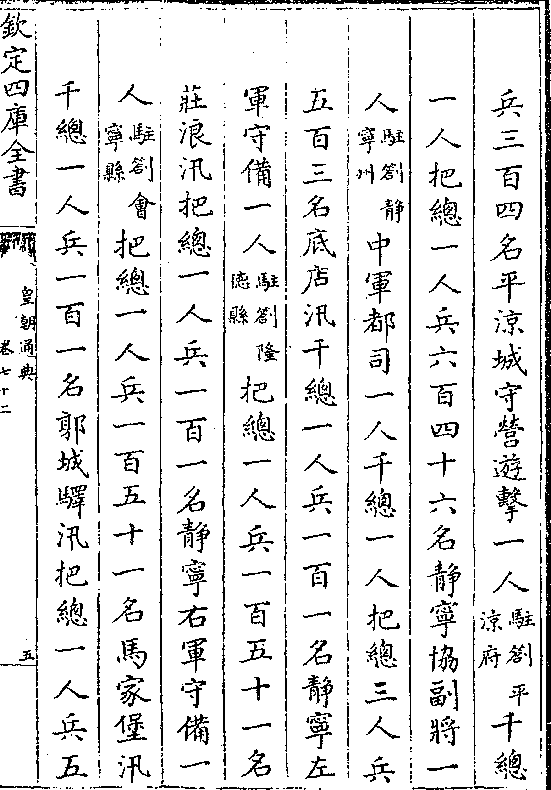 兵三百四名平涼城守營遊擊一人駐劄平涼府千總
一人把總一人兵六百四十六名靜寧協副將一
人駐劄靜寧州中軍都司一人千總一人把總三人兵
五百三名底店汛千總一人兵一百一名靜寧左
軍守備一人駐劄隆德縣把總一人兵一百五十一名
莊浪汛把總一人兵一百一名靜寧右軍守備一
人駐劄會寧縣把總一人兵一百五十一名馬家堡汛
千總一人兵一百一名郭城驛汛把總一人兵五
欽定四庫全書
皇朝通典
卷七十二
五